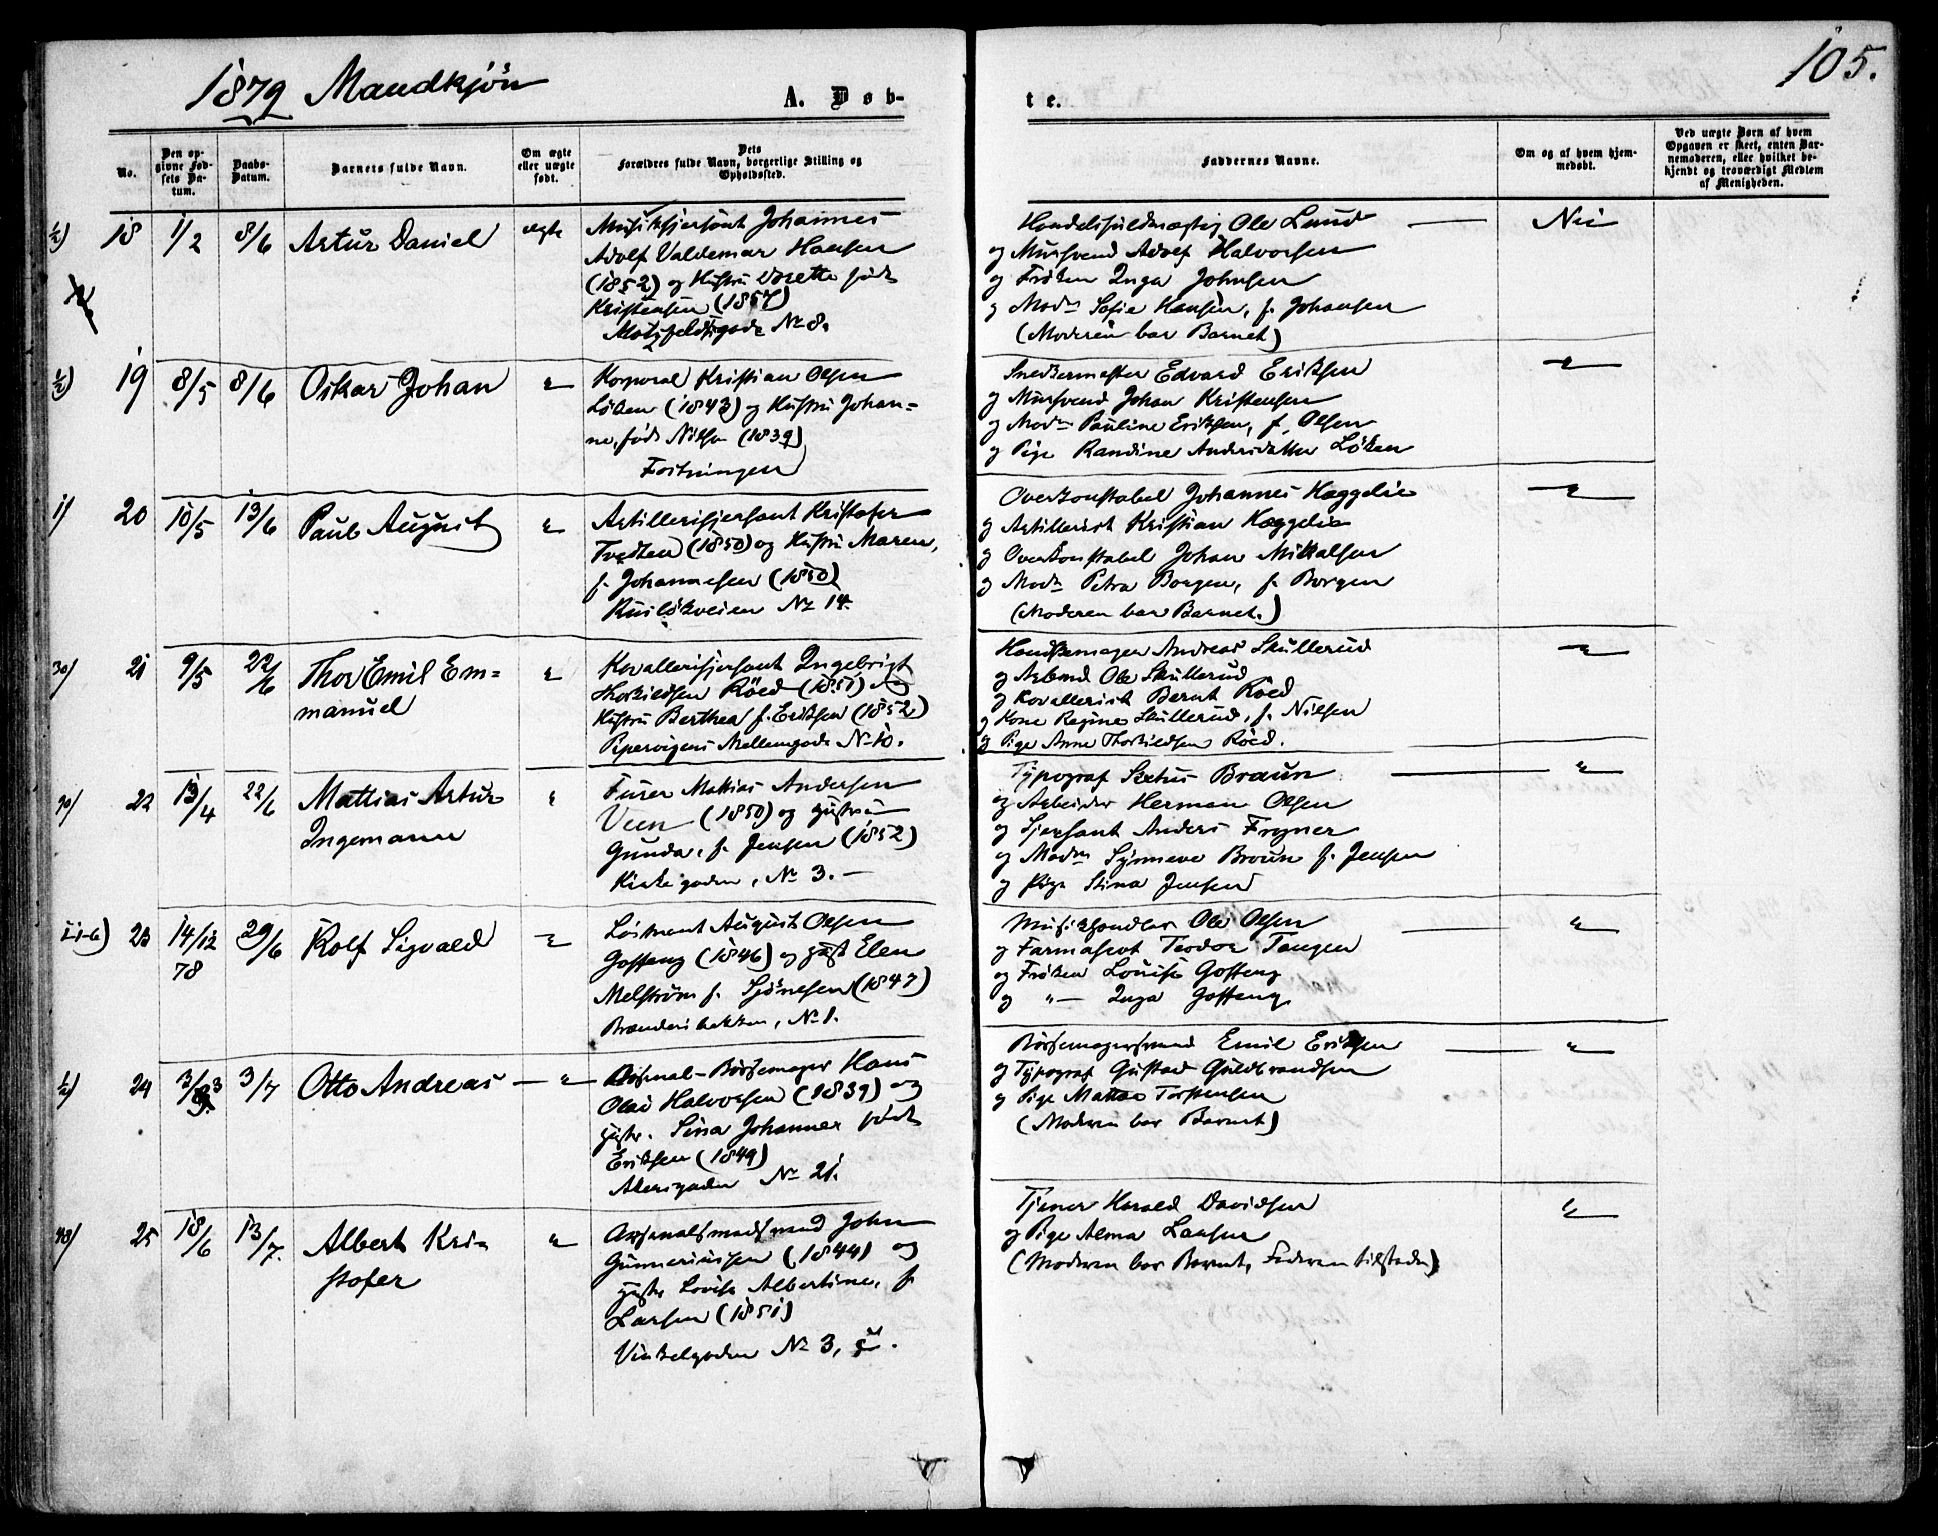 105.
1879 Mandkjön
A. Døb-
te.
No.
Den op-
givne Fød-
sels Da-
tum.
Daabs-
Datum.
Barnets fulde Navn.
Om ægte
eller uægte
født.
Dets
Forældres fulde Navn, borgerlige Stilling og
Opholdssted.
Faddernes Navne.
Om og af hvem hjem-
medøbt.
Ved uægte Børn af hvem
Opgaven er skeet, enten Bar-
nemoderen, eller hvilket be-
kjendt og troværdigt Medlem
af Menigheden.
½) 18 1/2 8/6 Artur Daniel ægte
Musiksjersant Johannes
Adolf Valdemar Hansen
(1852) og Hustru Dorette født
Kristensen (1857)
Motzfeldtsgade No 8.
Handelsfuldmægtig Ole Lund — Nei
og Mursvend Adolf Halvorsen
og Frøken Inga Johnsen
og Modm Sofie Hansen, f. Johansen
(Moderen bar Barnet)
½) 19 8/5 8/6 Oskar Johan "
Korporal Kristian Olsen
Løken (1843) og Hustru Johan-
ne, født Nilsen (1839)
Festningen
Snedkermester Edvard Eriksen "
og Mursvend Johan Kristensen
og Modm Pauline Eriksen, f. Olsen
og Pige Randine Andersdatter Løken
1) 20 10/5 13/6 Paul August "
Artillerisjersant Kristofer
Tvedten (1850) og Hustru Maren,
f. Johannesen (1850)
Ruseløkveien No 14.
Overkonstabel Johannes Hæggelie "
og Artillerist Kristian Hæggelie
og Overkonstabel Johan Mikkalsen
og Modm Petra Borgen, f. Borgen
(Moderen bar Barnet.)
30) 21 9/5 22/6 Thor Emil Em-
manuel "
Kavallerisjersant Ingebrigt
Thorkildsen Röed (1851) og
Hustru Berthea f. Eriksen (1852)
Pipervigens Mellemgade No 10.
Handskemager Andreas Skullerud "
og Arbmd Ole Skullerud
og Kavallerist Bernt Röed
og Kone Regine Skullerud, f. Nilsen
og Pige Anne Thorkildsen Röed.
90) 22 13/4 22/6 Mattias Artur
Ingemann "
Furer Mathias Andersen
Veen (1850) og Hustru
Gunda, f. Jensen (1852)
Kirkegaden, No 3. —
Typograf Braun — "
og Arbeider Herman Olsen
og Sjersant Anders Frogner
og Modm Synneve Braun f. Jensen
og Pige Stina Jensen
23 14/12 78 29/6 Rolf Sigvald "
Løitnant August Olsen
Gosseng (1846) og Hust Elen
Melstrøm f. Sjönesen (1847)
Brænderibakken, No 1.
Musikhandler Ole Olsen — "
og Farmaseut Teodor Tangen
og Frøken Louise Gosseng
og " — Inga Gosseng
½) 24 3/3 3/7 Otto Andreas — "
Arsenal-Børsemager Hans
Olai Halvorsen (1839) og
Hustr. Sina Johanne født
Eriksen (1849)
Akersgaden No 21.
Børsemagersvend Emil Eriksen — "
og Typograf Gustav Guldbrandsen
og Pige Mattea Torstensen
(Moderen bar Barnet)
40) 25 18/6 13/7. Albert Kri-
stofer "
Arsenalsmedsmed John
Gunneriusen (1844) og
Hustr Lovise Albertine, f.
Larsen (1851)
Vinkelgaden No 3,
Tjener Harald Davidsen "
og Pige Alma Larsen
(Moderen bar Barnet, Faderen tilstede)